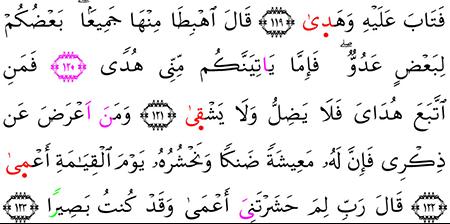 فَتَابَ عَلَيْهِ وَهَدٜىٰ ﴿١١٩﴾ قَالَ اَهْبِطَا مِنْهَا جَمِيعَۢاۖ بَعْضُكُمْ
لِبَعْضٍ عَدُوࣱّۖ فَإِمَّا يَاتِيَنَّكُم مِّنِّے هُدࣰى ﴿١٢٠﴾ فَمَنِ
اَ۪تَّبَعَ هُدَايَ فَلَا يَضِلُّ وَلَا يَشْقٜىٰ ﴿١٢١﴾ وَمَنَ اَعْرَضَ عَن
ذِكْرِى فَإِنَّ لَهُۥ مَعِيشَةࣰ ضَنكࣰا وَنَحْشُرُهُۥ يَوْمَ اَ۬لْقِيَٰمَةِ أَعْمٜىٰ
﴿١٢٢﴾ قَالَ رَبِّ لِمَ حَشَرْتَنِيَ أَعْمَىٰ وَقَدْ كُنتُ بَصِيرࣰا ﴿١٢٣﴾